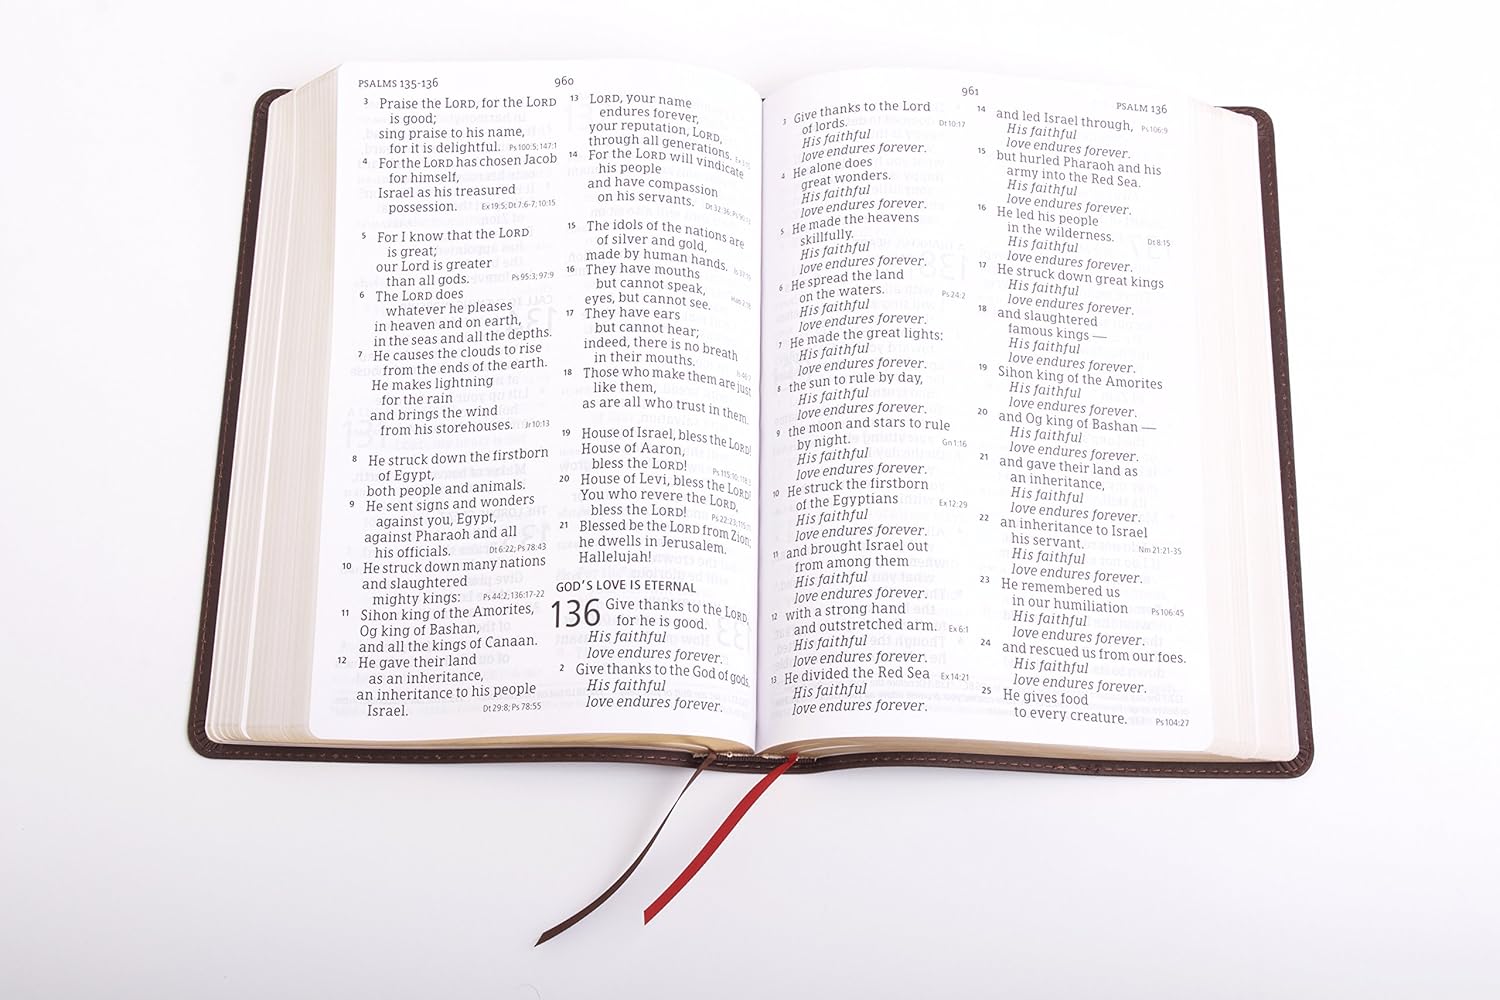 PSALMS 135-136
960
3 Praise the LORD, for the LORD
is good;
sing praise to his name,
for it is delightful. Ps 100:5; 147:1
4 For the LORD has chosen Jacob
for himself,
Israel as his treasured
possession. Ex 19:5; Dt 7:6-7; 10:15
5 For I know that the LORD
is great;
our Lord is greater
than all gods. Ps 95:3; 97:9
6 The LORD does
whatever he pleases
in heaven and on earth,
in the seas and all the depths.
7 He causes the clouds to rise
from the ends of the earth.
He makes lightning
for the rain
and brings the wind
from his storehouses. Jr 10:13
8 He struck down the firstborn
of Egypt,
both people and animals.
9 He sent signs and wonders
against you, Egypt,
against Pharaoh and all
his officials. Dt 6:22; Ps 78:43
10 He struck down many nations
and slaughtered
mighty kings: Ps 44:2; 136:17-22
11 Sihon king of the Amorites,
Og king of Bashan,
and all the kings of Canaan.
12 He gave their land
as an inheritance,
an inheritance to his people
Israel. Dt 29:8; Ps 78:55
13 LORD, your name
endures forever,
your reputation, LORD,
through all generations.
14 For the LORD will vindicate
his people
and have compassion
on his servants. Dt 32:36;
15 The idols of the nations are
of silver and gold,
made by human hands.
16 They have mouths
but cannot speak,
eyes, but cannot see.
17 They have ears
but cannot hear;
indeed, there is no breath
in their mouths.
18 Those who make them are just
like them,
as are all who trust in them.
19 House of Israel, bless the LORD!
House of Aaron,
bless the LORD!
20 House of Levi, bless the LORD!
You who revere the LORD,
bless the LORD!
21 Blessed be the LORD from Zion;
he dwells in Jerusalem.
Hallelujah!
GOD'S LOVE IS ETERNAL
136 Give thanks to the LORD,
for he is good.
His faithful
love endures forever.
2 Give thanks to the God of gods.
His faithful
love endures forever.
961
PSALM 136
3 Give thanks to the Lord
of lords. Dt 10:17
His faithful
love endures forever.
4 He alone does
great wonders.
His faithful
love endures forever.
5 He made the heavens
skillfully.
His faithful
love endures forever.
6 He spread the land
on the waters. Ps 24:2
His faithful
love endures forever.
7 He made the great lights:
His faithful
love endures forever.
8 the sun to rule by day,
His faithful
love endures forever.
9 the moon and stars to rule
by night. Gn 1:16
His faithful
love endures forever.
10 He struck the firstborn
of the Egyptians Ex 12:29
His faithful
love endures forever.
11 and brought Israel out
from among them
His faithful
love endures forever.
12 with a strong hand
and outstretched arm. Ex 6:1
His faithful
love endures forever.
13 He divided the Red Sea Ex 14:21
His faithful
love endures forever.
14 and led Israel through, Ps 106:9
His faithful
love endures forever.
15 but hurled Pharaoh and his
army into the Red Sea.
His faithful
love endures forever.
16 He led his people
in the wilderness. Dt 8:15
His faithful
love endures forever.
17 He struck down great kings
His faithful
love endures forever.
18 and slaughtered
famous kings —
His faithful
love endures forever.
19 Sihon king of the Amorites
His faithful
love endures forever.
20 and Og king of Bashan —
His faithful
love endures forever.
21 and gave their land as
an inheritance,
His faithful
love endures forever.
22 an inheritance to Israel
his servant. Nm 21:21-35
His faithful
love endures forever.
23 He remembered us
in our humiliation Ps 106:45
His faithful
love endures forever.
24 and rescued us from our foes.
His faithful
love endures forever.
25 He gives food
to every creature. Ps 104:27